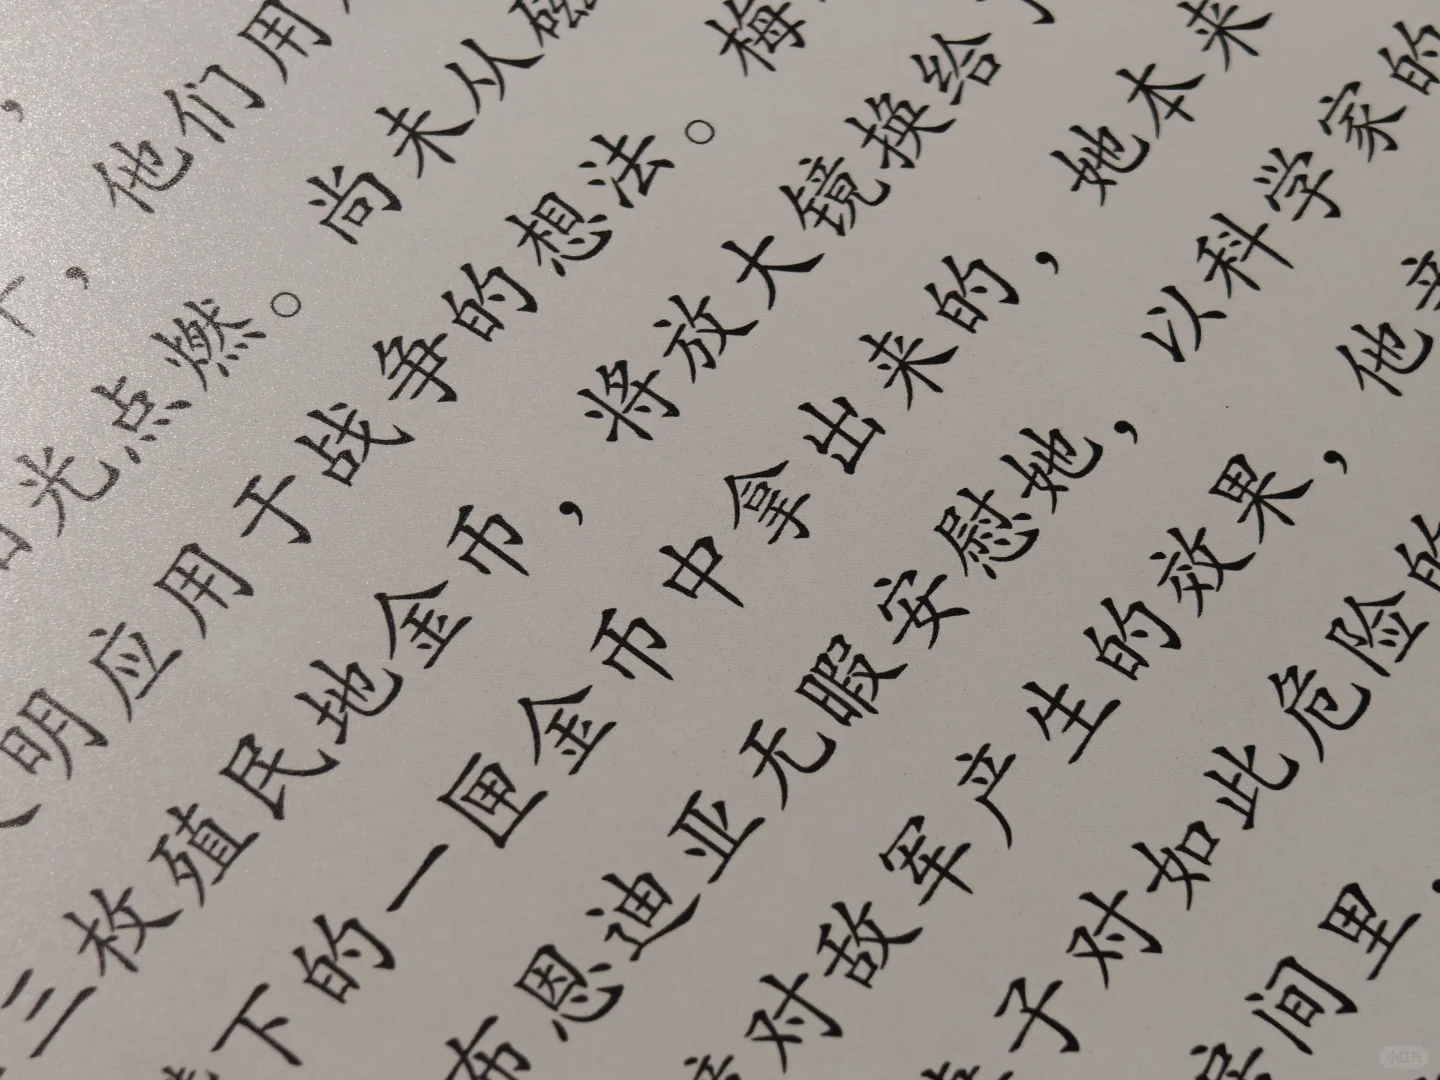 ，他们用
光点燃。尚未从磁
明应用于战争的想法。梅
三枚殖民地金币，将放大镜换给了
下的一匣金币中拿出来的，她本来
布恩迪亚无暇安慰她，以科学家的
对敌军产生的效果，他亲
子对如此危险的
间里
小红书